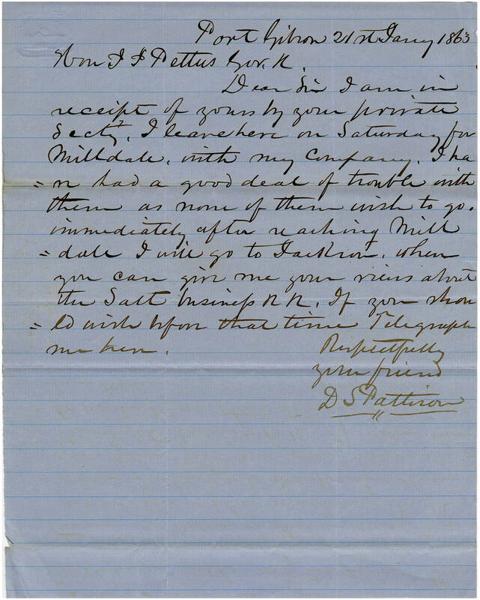 Port Gibson 21st Jany 1863
Hon J J Pettus Gov. &.
Dear Sir I am in
receipt of yours by your private
Secty. I leave here on Saturday for
Milldale, with my Company. I ha
= ve had a good deal of trouble with
them as none of them wish to go.
immediately after reaching Mill
= dale I will go to Jackson, when
you can give me your views about
the Salt business &c. If you shou
= ld wish before that time Telegraph
me here.
Respectfully
your friend
D S Pattison